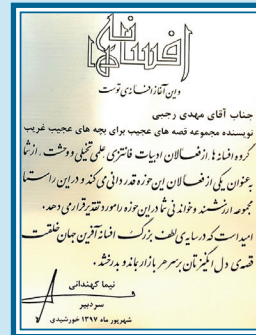 افسانه‌ها
و این آغاز افسانه‌ی توست
جناب آقای مهدی رجبی
نویسنده مجموعه قصه های عجیب برای بچه های عجیب غریب
گروه افسانه‌ها از فعالان ادبیات فانتزی، علمی تخیلی و وحشت، از شما
به عنوان یکی از فعالان این حوزه قدردانی می کند و در این راستا
مجموعه ارزشمند و خواندنی شما در این حوزه را مورد تقدیر قرار می دهد.
امید است که در سایه‌ی لطف بزرگ افسانه آفرین جهان خلقت
قصه‌ی دل انگیزتان بر سر هر بازار بماند و بدرخشد.
نیما کهندانی
سردبیر
شهریور ماه ۱۳۹۷ خورشیدی